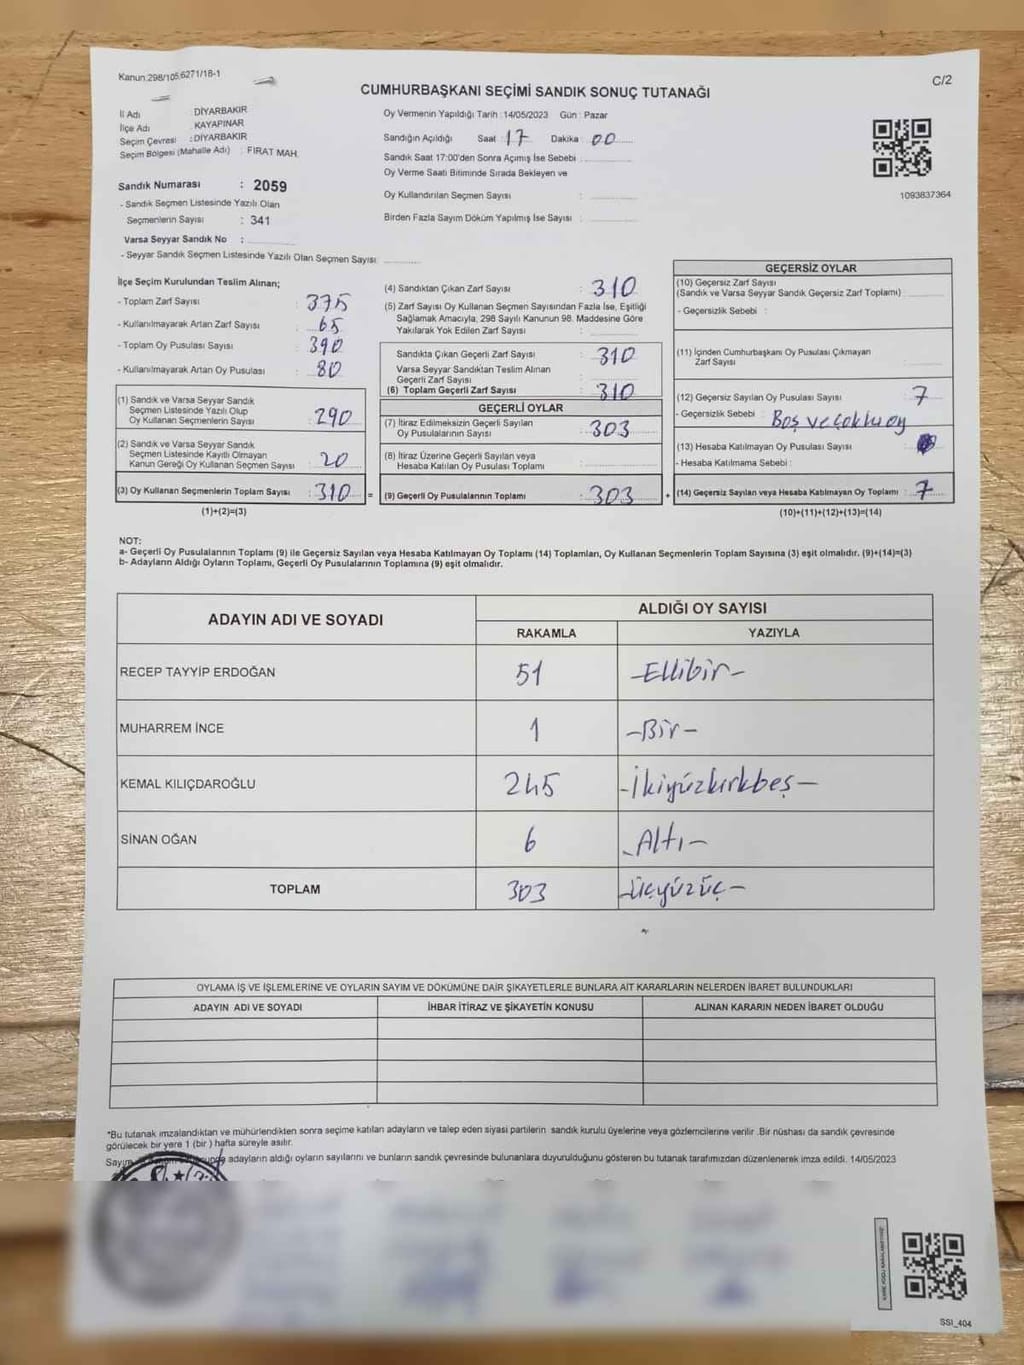 Kanun.298/105,6271/18-1
C/2
CUMHURBAŞKANI SEÇİMİ SANDIK SONUÇ TUTANAĞI
İl Adı : DİYARBAKIR
İlçe Adı : KAYAPINAR
Seçim Çevresi : DİYARBAKIR
Seçim Bölgesi (Mahalle Adı) : FIRAT MAH.
Oy Vermenin Yapıldığı Tarih : 14/05/2023 Gün : Pazar
Sandığın Açıldığı Saat 17 Dakika 00
Sandık Saat 17:00'den Sonra Açılmış İse Sebebi :
Oy Verme Saati Bitiminde Sırada Bekleyen ve
Oy Kullandırılan Seçmen Sayısı :
Birden Fazla Sayım Döküm Yapılmış İse Sayısı :
1093837364
Sandık Numarası : 2059
- Sandık Seçmen Listesinde Yazılı Olan
Seçmenlerin Sayısı : 341
Varsa Seyyar Sandık No :
- Seyyar Sandık Seçmen Listesinde Yazılı Olan Seçmen Sayısı:
İlçe Seçim Kurulundan Teslim Alınan;
- Toplam Zarf Sayısı : 375
- Kullanılmayarak Artan Zarf Sayısı : 65
- Toplam Oy Pusulası Sayısı : 390
- Kullanılmayarak Artan Oy Pusulası : 80
(1) Sandık ve Varsa Seyyar Sandık
Seçmen Listesinde Yazılı Olup
Oy Kullanan Seçmenlerin Sayısı : 290
(2) Sandık ve Varsa Seyyar Sandık
Seçmen Listesinde Kayıtlı Olmayan
Kanun Gereği Oy Kullanan Seçmen Sayısı : 20
(3) Oy Kullanan Seçmenlerin Toplam Sayısı : 310 =
(1)+(2)=(3)
(4) Sandıktan Çıkan Zarf Sayısı : 310
(5) Zarf Sayısı Oy Kullanan Seçmen Sayısından Fazla İse, Eşitliği
Sağlamak Amacıyla, 298 Sayılı Kanunun 98. Maddesine Göre
Yakılarak Yok Edilen Zarf Sayısı :
Sandıkta Çıkan Geçerli Zarf Sayısı : 310
Varsa Seyyar Sandıktan Teslim Alınan
Geçerli Zarf Sayısı :
(6) Toplam Geçerli Zarf Sayısı : 310
GEÇERLİ OYLAR
(7) İtiraz Edilmeksizin Geçerli Sayılan
Oy Pusulalarının Sayısı : 303
(8) İtiraz Üzerine Geçerli Sayılan veya
Hesaba Katılan Oy Pusulası Toplamı :
(9) Geçerli Oy Pusulalarının Toplamı : 303 +
GEÇERSİZ OYLAR
(10) Geçersiz Zarf Sayısı
(Sandık ve Varsa Seyyar Sandık Geçersiz Zarf Toplamı) :
- Geçersizlik Sebebi :
(11) İçinden Cumhurbaşkanı Oy Pusulası Çıkmayan
Zarf Sayısı :
(12) Geçersiz Sayılan Oy Pusulası Sayısı : 7
- Geçersizlik Sebebi : Boş ve çoklu oy
(13) Hesaba Katılmayan Oy Pusulası Sayısı :
- Hesaba Katılmama Sebebi :
(14) Geçersiz Sayılan veya Hesaba Katılmayan Oy Toplamı : 7
(10)+(11)+(12)+(13)=(14)
NOT:
a- Geçerli Oy Pusulalarının Toplamı (9) ile Geçersiz Sayılan veya Hesaba Katılmayan Oy Toplamı (14) Toplamları, Oy Kullanan Seçmenlerin Toplam Sayısına (3) eşit olmalıdır. (9)+(14)=(3)
b- Adayların Aldığı Oyların Toplamı, Geçerli Oy Pusulalarının Toplamına (9) eşit olmalıdır.
ADAYIN ADI VE SOYADI
ALDIĞI OY SAYISI
RAKAMLA YAZIYLA
RECEP TAYYİP ERDOĞAN 51 -Ellibir-
MUHARREM İNCE 1 -Bir-
KEMAL KILIÇDAROĞLU 245 -İkiyüzkırkbeş-
SİNAN OĞAN 6 -Altı-
TOPLAM 303 -üçyüzüç-
OYLAMA İŞ VE İŞLEMLERİNE VE OYLARIN SAYIM VE DÖKÜMÜNE DAİR ŞİKAYETLERLE BUNLARA AİT KARARLARIN NELERDEN İBARET BULUNDUKLARI
ADAYIN ADI VE SOYADI İHBAR İTİRAZ VE ŞİKAYETİN KONUSU ALINAN KARARIN NEDEN İBARET OLDUĞU
*Bu tutanak imzalandıktan ve mühürlendikten sonra seçime katılan adayların ve talep eden siyasi partilerin sandık kurulu üyelerine veya gözlemcilerine verilir .Bir nüshası da sandık çevresinde
görülecek bir yere 1 (bir ) hafta süreyle asılır.
adayların aldığı oyların sayılarını ve bunların sandık çevresinde bulunanlara duyurulduğunu gösteren bu tutanak tarafımızdan düzenlenerek imza edildi. 14/05/2023
SSI_404